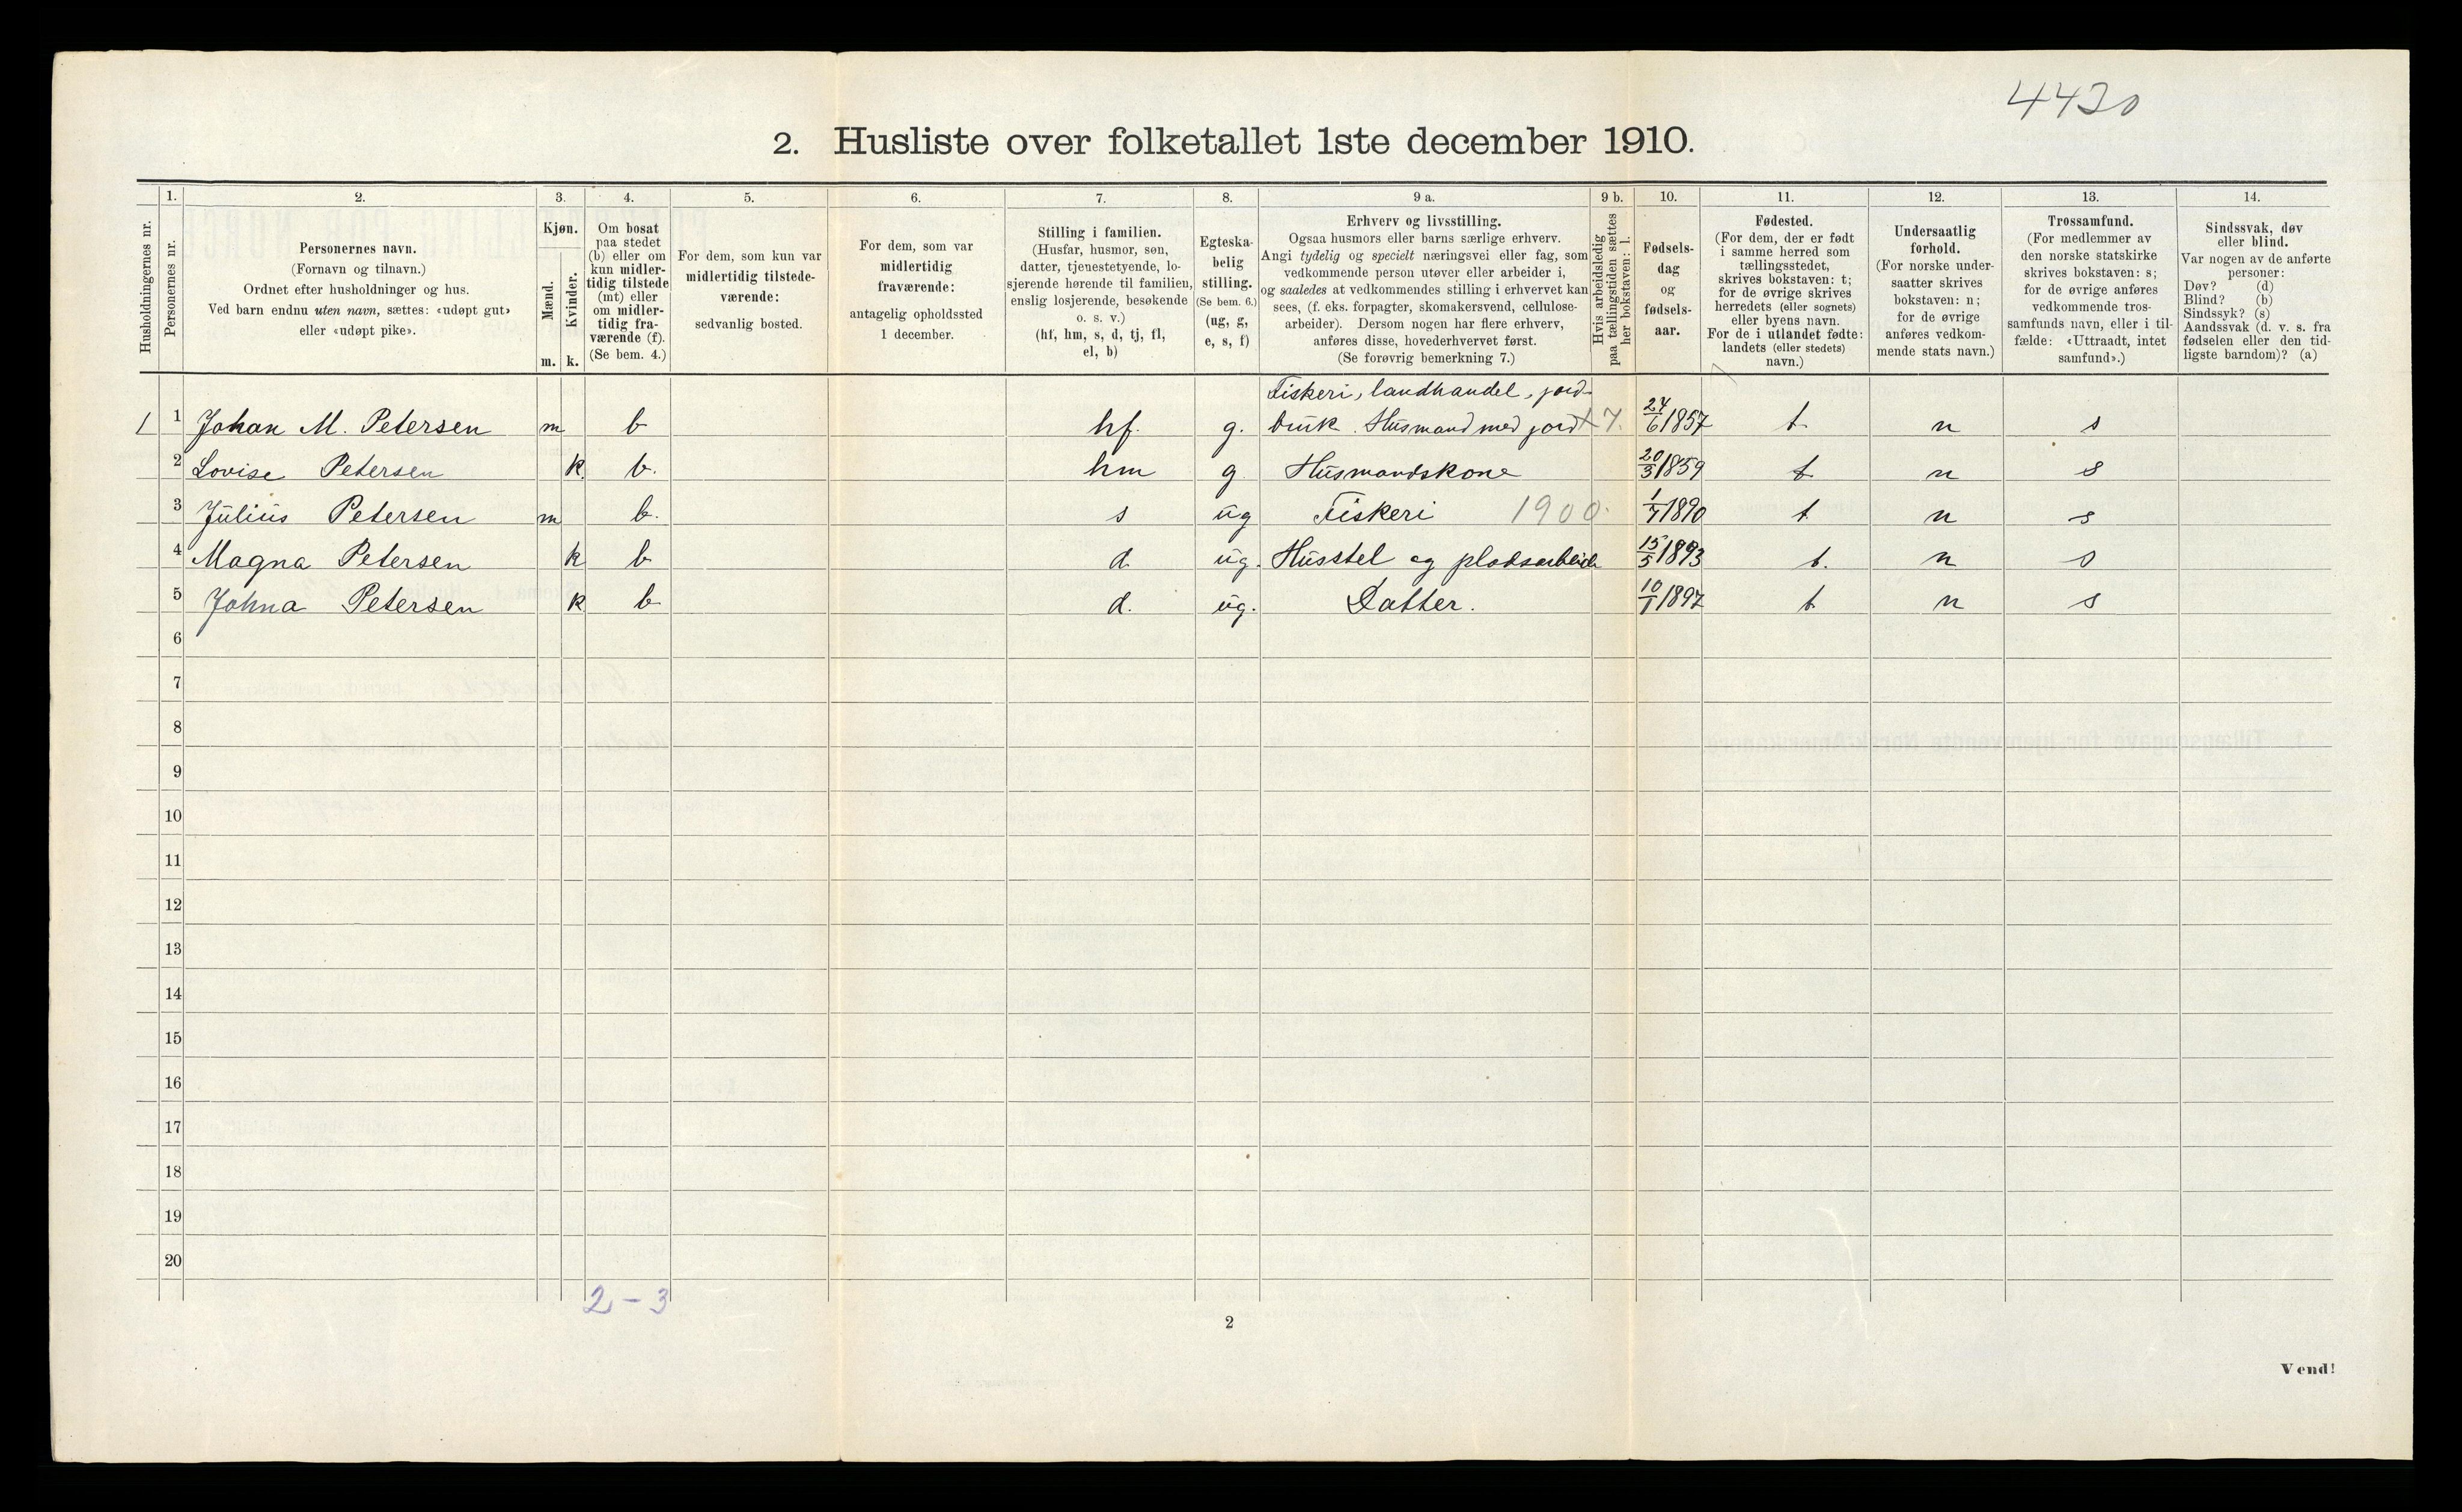 4420
2. Husliste over folketallet 1ste december 1910.
Husholdningernes nr.
1.
Personernes nr.
2.
Personernes navn.
(Fornavn og tilnavn.)
Ordnet efter husholdninger og hus.
Ved barn endnu uten navn, sættes: «udøpt gut»
eller «udøpt pike».
3.
Kjøn.
Mænd.
Kvinder.
m. k.
4.
Om bosat
paa stedet
(b) eller om
kun midler-
tidig tilstede
(mt) eller
om midler-
tidig fra-
værende (f).
(Se bem. 4.)
5.
For dem, som kun var
midlertidig tilstede-
værende:
sedvanlig bosted.
6.
For dem, som var
midlertidig
fraværende:
antagelig opholdssted
1 december.
7.
Stilling i familien.
(Husfar, husmor, søn,
datter, tjenestetyende, lo-
sjerende hørende til familien,
enslig losjerende, besøkende
o. s. v.)
(hf, hm, s, d, tj, fl,
el, b)
8.
Egteska-
belig
stilling.
(Se bem. 6.)
(ug, g,
e, s, f)
9 a.
Erhverv og livsstilling.
Ogsaa husmors eller barns særlige erhverv.
Angi tydelig og specielt næringsvei eller fag, som
vedkommende person utøver eller arbeider i,
og saaledes at vedkommendes stilling i erhvervet kan
sees, (f. eks. forpagter, skomakersvend, cellulose-
arbeider). Dersom nogen har flere erhverv,
anføres disse, hovederhvervet først.
(Se forøvrig bemerkning 7.)
9 b.
Hvis arbeidsledig
paa tællingstiden sættes
her bokstaven: l.
10.
Fødsels-
dag
og
fødsels-
aar.
11.
Fødested.
(For dem, der er født
i samme herred som
tællingsstedet,
skrives bokstaven: t;
for de øvrige skrives
herredets (eller sognets)
eller byens navn.
For de i utlandet fødte:
landets (eller stedets)
navn.)
12.
Undersaatlig
forhold.
(For norske under-
saatter skrives
bokstaven: n;
for de øvrige
anføres vedkom-
mende stats navn.)
13.
Trossamfund.
(For medlemmer av
den norske statskirke
skrives bokstaven: s;
for de øvrige anføres
vedkommende tros-
samfunds navn, eller i til-
fælde: «Uttraadt, intet
samfund».)
14.
Sindssvak, døv
eller blind.
Var nogen av de anførte
personer:
Døv? (d)
Blind? (b)
Sindssyk? (s)
Aandssvak (d. v. s. fra
fødselen eller den tid-
ligste barndom)? (a)
Fiskeri, landhandel, jord-
1 1 Johan M. Petersen m b hf. g. bruk. Husmand med jord 7. 24/6 1857 t n s
2 Lovise Petersen k. b. hm g Husmandskone 20/3 1859 t n s
3 Julius Petersen m b. s ug Fiskeri 1900. 1/7 1890 t n s
4 Magna Petersen k b d ug. Husstel og pladsarbeide 15/5 1893 t. n s
5 Johna Petersen k b d. ug. Datter. 10/1 1897 t n s
6
7
8
9
10
11
12
13
14
15
16
17
18
19
20
2 - 3
2
Vend!